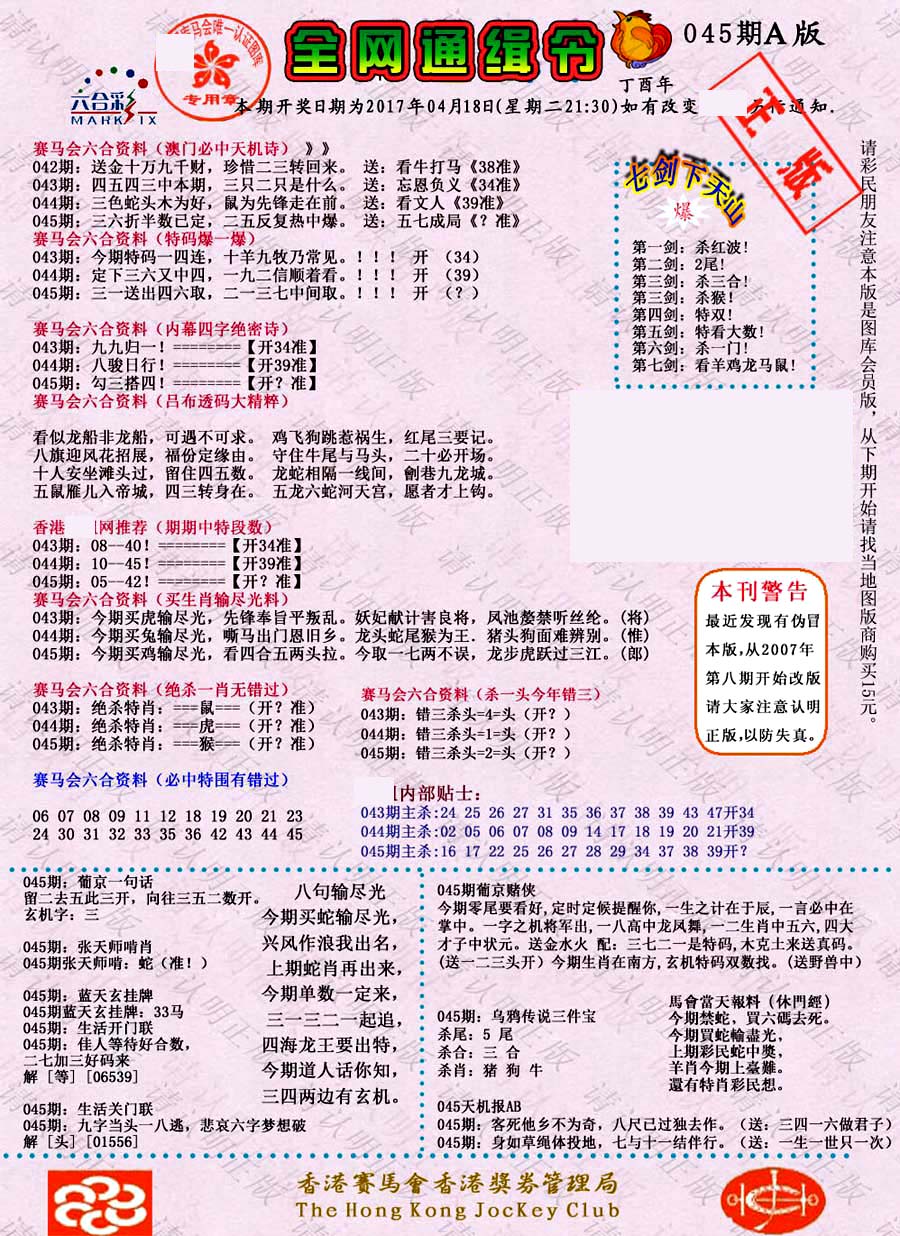 全网通缉令
045期A版
丁酉年
六合彩
MARK SIX
专用章
本期开奖日期为2017年04月18日(星期二21:30)如有改变 另行通知.
正版
赛马会六合资料（澳门必中天机诗）》》
042期: 送金十万九千财，珍惜二三转回来。 送: 看牛打马《38准》
043期: 四五四三中本期，三只二只是什么。 送: 忘恩负义《34准》
044期: 三色蛇头木为好，鼠为先锋走在前。 送: 看文人《39准》
045期: 三六折半数已定，二五反复热中爆。 送: 五七成局《？准》
赛马会六合资料（特码爆一爆）
043期: 今期特码一四连，十羊九牧乃常见。！！！ 开 （34）
044期: 定下三六又中四，一九二信顺着看。！！！ 开 （39）
045期: 三一送出四六取，二一三七中间取。！！！ 开 （？）
赛马会六合资料（内幕四字绝密诗）
043期: 九九归一！========【开34准】
044期: 八骏日行！========【开39准】
045期: 勾三搭四！========【开？准】
赛马会六合资料（吕布透码大精粹）
看似龙船非龙船，可遇不可求。 鸡飞狗跳惹祸生，红尾三要记。
八旗迎风花招展，福份定缘由。 守住牛尾与马头，二十必开场。
十人安坐滩头过，留住四五数。 龙蛇相隔一线间，劊巷九龙城。
五鼠雁儿入帝城，四三转身在。 五龙六蛇河天宫，愿者才上钩。
七剑下天山
爆
第一剑: 杀红波!
第二剑: 2尾!
第三剑: 杀三合!
第三剑: 杀猴!
第四剑: 特双!
第五剑: 特看大数!
第六剑: 杀一门!
第七剑: 看羊鸡龙马鼠!
请彩民朋友注意本版是图库会员版，从下期开始请找当地图版商购买15元。
香港 网推荐（期期中特段数）
043期: 08--40！========【开34准】
044期: 10--45！========【开39准】
045期: 05--42！========【开？准】
赛马会六合资料（买生肖输尽光料）
043期: 今期买虎输尽光，先锋奉旨平叛乱。妖妃献计害良将，凤池嫠禁听丝纶。(将)
044期: 今期买兔输尽光，嘶马出门恩旧乡。龙头蛇尾猴为王．猪头狗面难辨别。(惟)
045期: 今期买鸡输尽光，看四合五两头拉。今取一七两不误，龙步虎跃过三江。(郎)
本刊警告
最近发现有伪冒
本版,从2007年
第八期开始改版
请大家注意认明
正版,以防失真。
赛马会六合资料（绝杀一肖无错过）
043期: 绝杀特肖: ===鼠===（开？准）
044期: 绝杀特肖: ===虎===（开？准）
045期: 绝杀特肖: ===猴===（开？准）
赛马会六合资料（杀一头今年错三）
043期: 错三杀头=4=头（开？）
044期: 错三杀头=1=头（开？）
045期: 错三杀头=2=头（开？）
赛马会六合资料（必中特围有错过）
06 07 08 09 11 12 18 19 20 21 23
24 30 31 32 33 35 36 42 43 44 45
内部贴士:
043期主杀:24 25 26 27 31 35 36 37 38 39 43 47开34
044期主杀:02 05 06 07 08 09 14 17 18 19 20 21开39
045期主杀:16 17 22 25 26 27 28 29 34 37 38 39开?
045期: 葡京一句话
留二去五此三开，向往三五二数开。
玄机字: 三
045期: 张天师啃肖
045期张天师啃: 蛇（准！）
045期: 蓝天玄挂牌
045期蓝天玄挂牌: 33马
045期: 生活开门联
045期: 佳人等待好合数，
二七加三好码来
解 [等] [06539]
045期: 生活关门联
045期: 九字当头一八逃，悲哀六字梦想破
解 [头] [01556]
八句输尽光
今期买蛇输尽光，
兴风作浪我出名，
上期蛇肖再出来，
今期单数一定来，
三一三二一起追，
四海龙王要出特，
今期道人话你知，
三四两边有玄机。
045期葡京赌侠
今期零尾要看好,定时定候提醒你,一生之计在于辰,一言必中在
掌中。一字之机将军出,一八高中龙凤舞,一二生肖中五六,四大
才子中状元。送金水火 配: 三七二一是特码,木克土来送真码。
(送一二三头开）今期生肖在南方,玄机特码双数找。(送野兽中）
045期: 乌鸦传说三件宝
杀尾: 5 尾
杀合: 三 合
杀肖: 猪 狗 牛
馬會當天報料（休門經）
今期禁蛇、買六碼去死。
今期買蛇輸盡光，
上期彩民蛇中獎，
羊肖今期上臺難。
還有特肖彩民想。
045天机报AB
045期: 客死他乡不为奇，八尺已过独去作。（送: 三四一六做君子）
045期: 身如草绳体投地，七与十一结伴行。（送: 一生一世只一次）
香港賽馬會香港獎券管理局
The Hong Kong JocKey Club